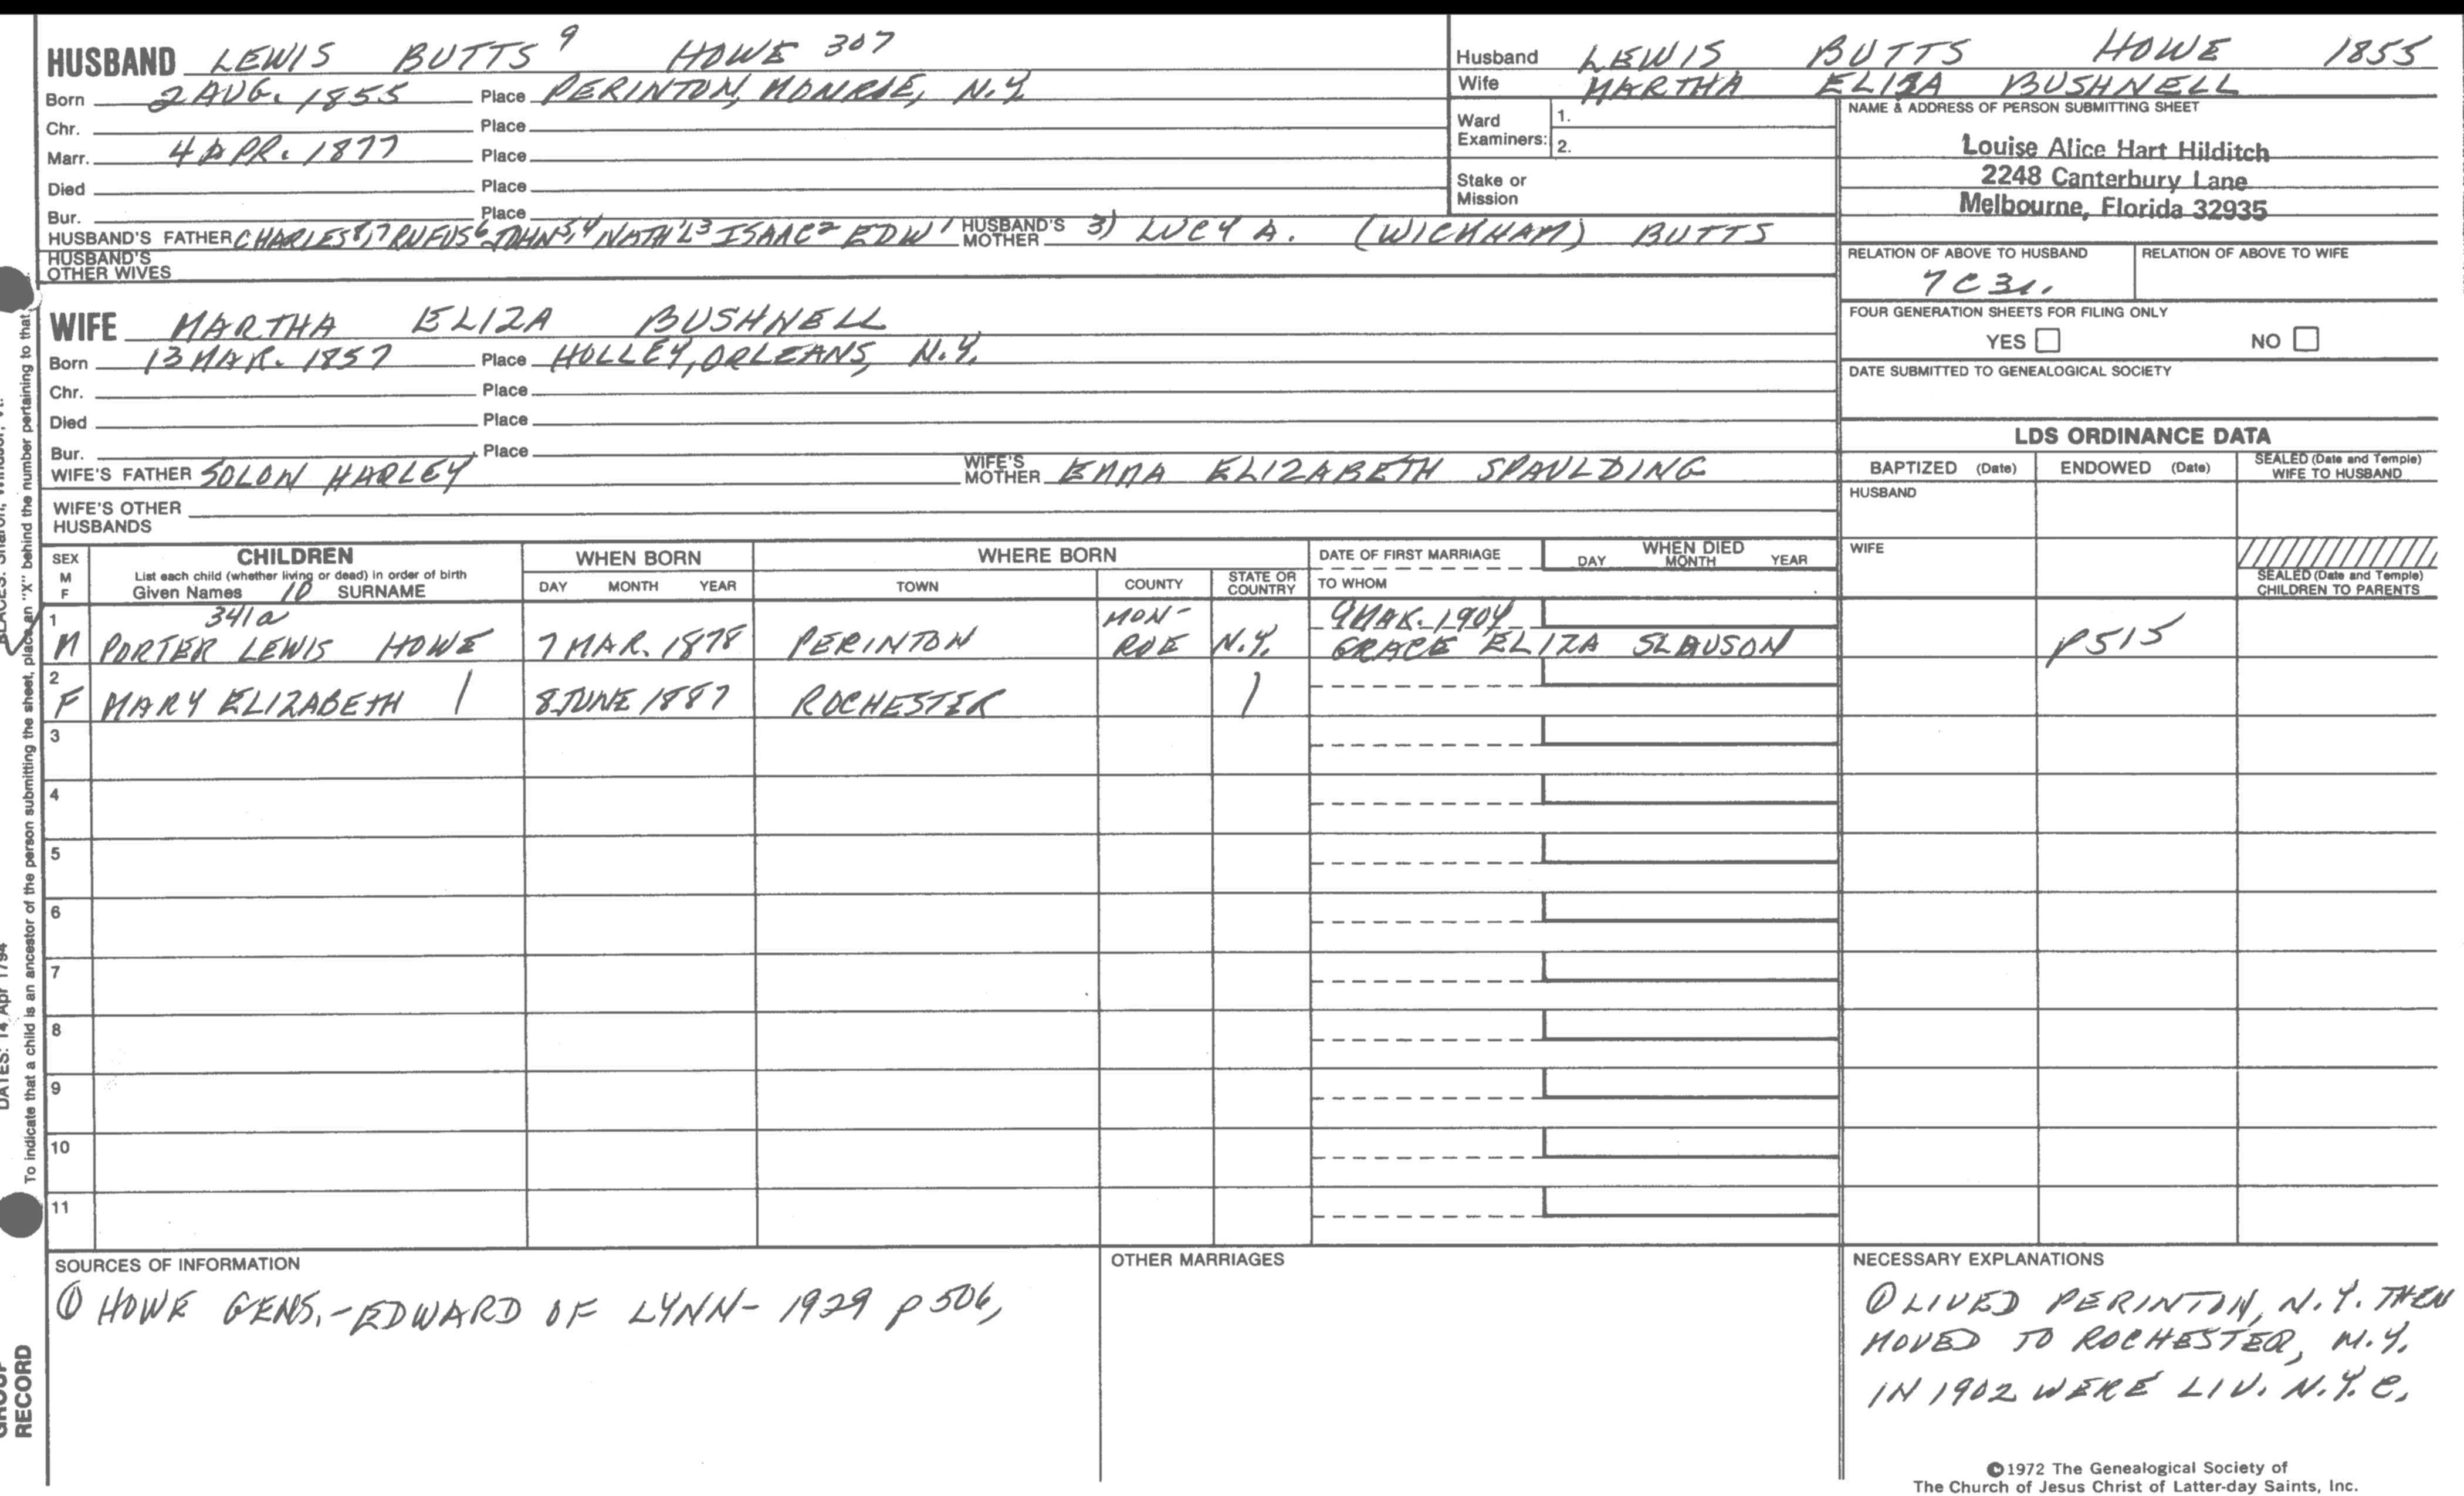 HUSBAND LEWIS BUTTS 9 HOWE 307
Born 2 AUG. 1855 Place PERINTON, MONROE, N.Y.
Chr. Place
Marr. 4 APR. 1877 Place
Died Place
Bur. Place
HUSBAND'S FATHER CHARLES 8,7 RUFUS 6 JOHN 5,4 NATH'L 3 ISAAC 2 EDW 1 HUSBAND'S MOTHER 3) LUCY A. (WICKHAM) BUTTS
HUSBAND'S OTHER WIVES
Husband LEWIS BUTTS HOWE 1855
Wife MARTHA ELIZA BUSHNELL
Ward Examiners: 1.
2.
Stake or Mission
NAME & ADDRESS OF PERSON SUBMITTING SHEET
Louise Alice Hart Hilditch
2248 Canterbury Lane
Melbourne, Florida 32935
RELATION OF ABOVE TO HUSBAND RELATION OF ABOVE TO WIFE
7C3r.
FOUR GENERATION SHEETS FOR FILING ONLY
YES NO
DATE SUBMITTED TO GENEALOGICAL SOCIETY
WIFE MARTHA ELIZA BUSHNELL
Born 13 MAR. 1857 Place HOLLEY, ORLEANS, N.Y.
Chr. Place
Died Place
Bur. Place
WIFE'S FATHER SOLON HARLEY WIFE'S MOTHER EMMA ELIZABETH SPAULDING
WIFE'S OTHER HUSBANDS
LDS ORDINANCE DATA
BAPTIZED (Date) ENDOWED (Date) SEALED (Date and Temple) WIFE TO HUSBAND
HUSBAND
WIFE
SEALED (Date and Temple) CHILDREN TO PARENTS
SEX M F CHILDREN WHEN BORN WHERE BORN DATE OF FIRST MARRIAGE WHEN DIED
List each child (whether living or dead) in order of birth
Given Names 10 SURNAME DAY MONTH YEAR TOWN COUNTY STATE OR COUNTRY TO WHOM DAY MONTH YEAR
1 341a MON- 9 MAR. 1904
M PORTER LEWIS HOWE 7 MAR. 1878 PERINTON ROE N.Y. GRACE ELIZA SLAUSON P515
2
F MARY ELIZABETH 8 JUNE 1887 ROCHESTER
3
4
5
6
7
8
9
10
11
SOURCES OF INFORMATION
① HOWE GENS.-EDWARD OF LYNN- 1929 P 506,
OTHER MARRIAGES
NECESSARY EXPLANATIONS
① LIVED PERINTON, N.Y. THEN
MOVED TO ROCHESTER, N.Y.
IN 1902 WERE LIV. N.Y.C.
©1972 The Genealogical Society of
The Church of Jesus Christ of Latter-day Saints, Inc.
To indicate that a child is an ancestor of the person submitting the sheet, place an "X" behind the number pertaining to that
DATES: 14 Apr 1794
GROUP
RECORD